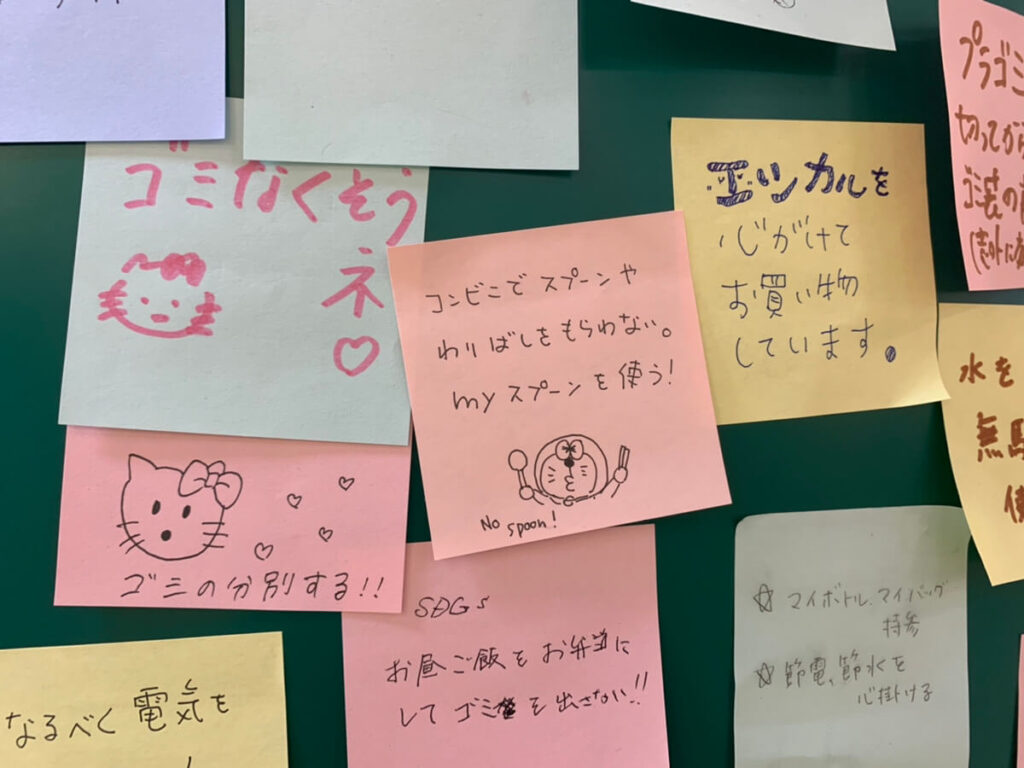 ゴミなくそう
ネ♡
コンビニでスプーンや
わりばしをもらわない。
myスプーンを使う!
No spoon!
エシカルを
心がけて
お買い物
しています。
プラゴミ
切ってから
水を
無駄
使
ゴミの分別する!!
SDGs
お昼ご飯をお弁当に
してゴミを出さない!!
☆ マイボトル、マイバッグ
持参
☆ 節電、節水を
心掛ける
なるべく電気を